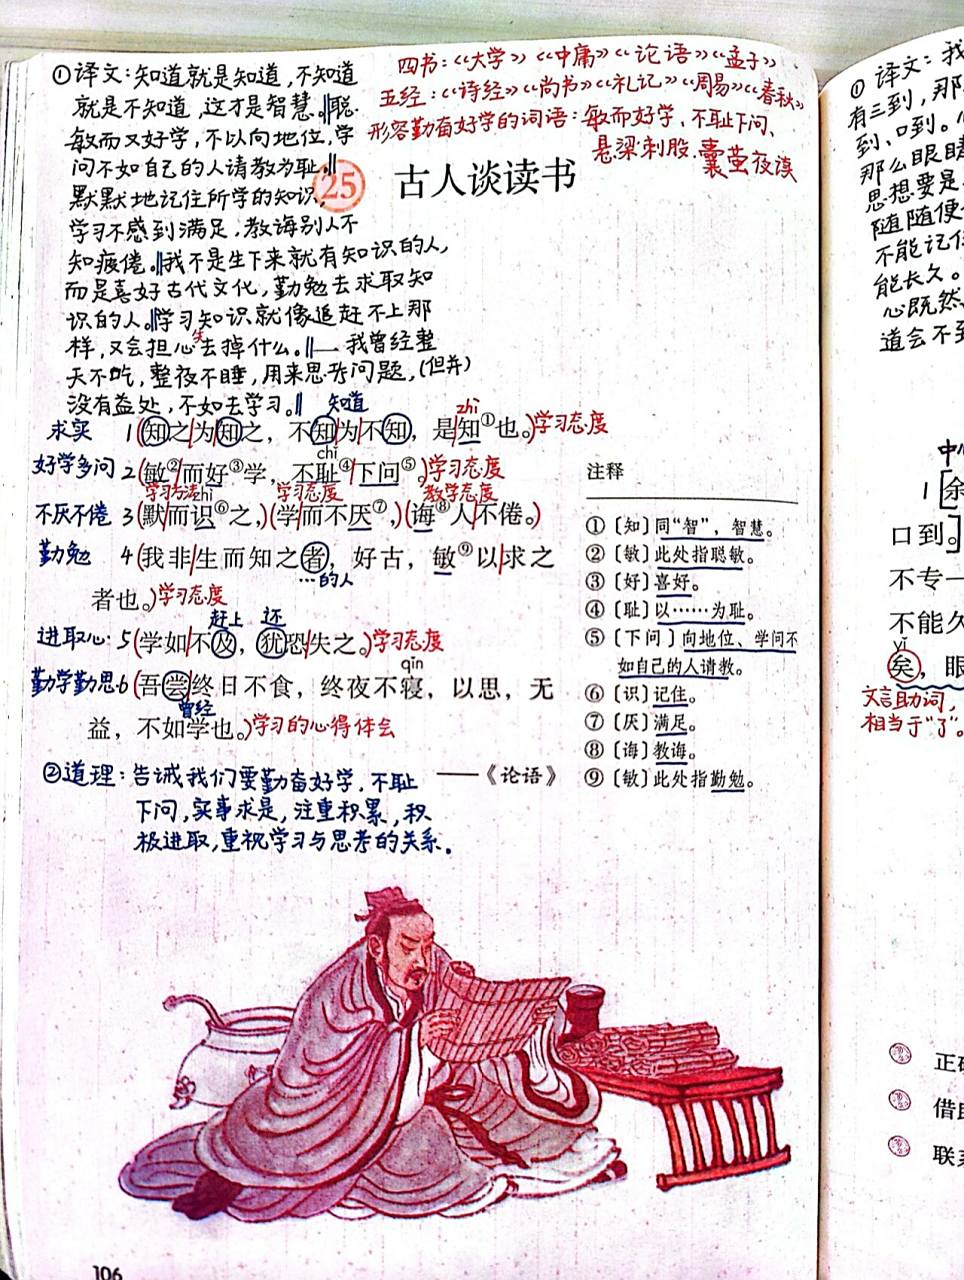 ①译文:知道就是知道,不知道
就是不知道,这才是智慧。‖聪
敏而又好学,不以向地位,学
问不如自己的人请教为耻。‖
默默地记住所学的知识,
学习不感到满足,教诲别人不
知疲倦。‖我不是生下来就有知识的人,
而是喜好古代文化,勤勉去求取知
识的人。‖学习知识就像追赶不上那
样,又会担心失去掉什么。‖我曾经整
天不吃,整夜不睡,用来思考问题,(但并)
没有益处,不如去学习。‖
四书:《大学》《中庸》《论语》《孟子》
五经:《诗经》《尚书》《礼记》《周易》《春秋》
形容勤奋好学的词语:敏而好学、不耻下问、
悬梁刺股、囊萤夜读
25 古人谈读书
知道 zhì
求实 1(知之为知之,不知为不知,是知①也。)学习态度
chǐ
好学多问 2(敏②而好③学,不耻④下问⑤。)学习态度
学习方法 zhì 学习态度 教学态度
不厌不倦 3(默而识⑥之,)(学而不厌⑦,)(诲⑧人不倦。)
勤勉 4(我非生而知之者,好古,敏⑨以求之
…的人
者也。)学习态度
赶上 还
进取心 5(学如不及,犹恐失之。)学习态度
qǐn
勤学勤思 6(吾尝终日不食,终夜不寝,以思,无
曾经
益,不如学也。)学习的心得体会
——《论语》
②道理:告诫我们要勤奋好学,不耻
下问,实事求是,注重积累,积
极进取,重视学习与思考的关系。
注释
①〔知〕同“智”,智慧。
②〔敏〕此处指聪敏。
③〔好〕喜好。
④〔耻〕以……为耻。
⑤〔下问〕向地位、学问不
如自己的人请教。
⑥〔识〕记住。
⑦〔厌〕满足。
⑧〔诲〕教诲。
⑨〔敏〕此处指勤勉。
106
①译文:我
有三到,那
到、口到。心
那么眼睛
思想要是
随随便便
不能记住
能长久。
心既然
道会不到
1[余
口到。]
不专一
不能久
yǐ
矣,眼
文言助词,
相当于“了”。
正确
借助
联系